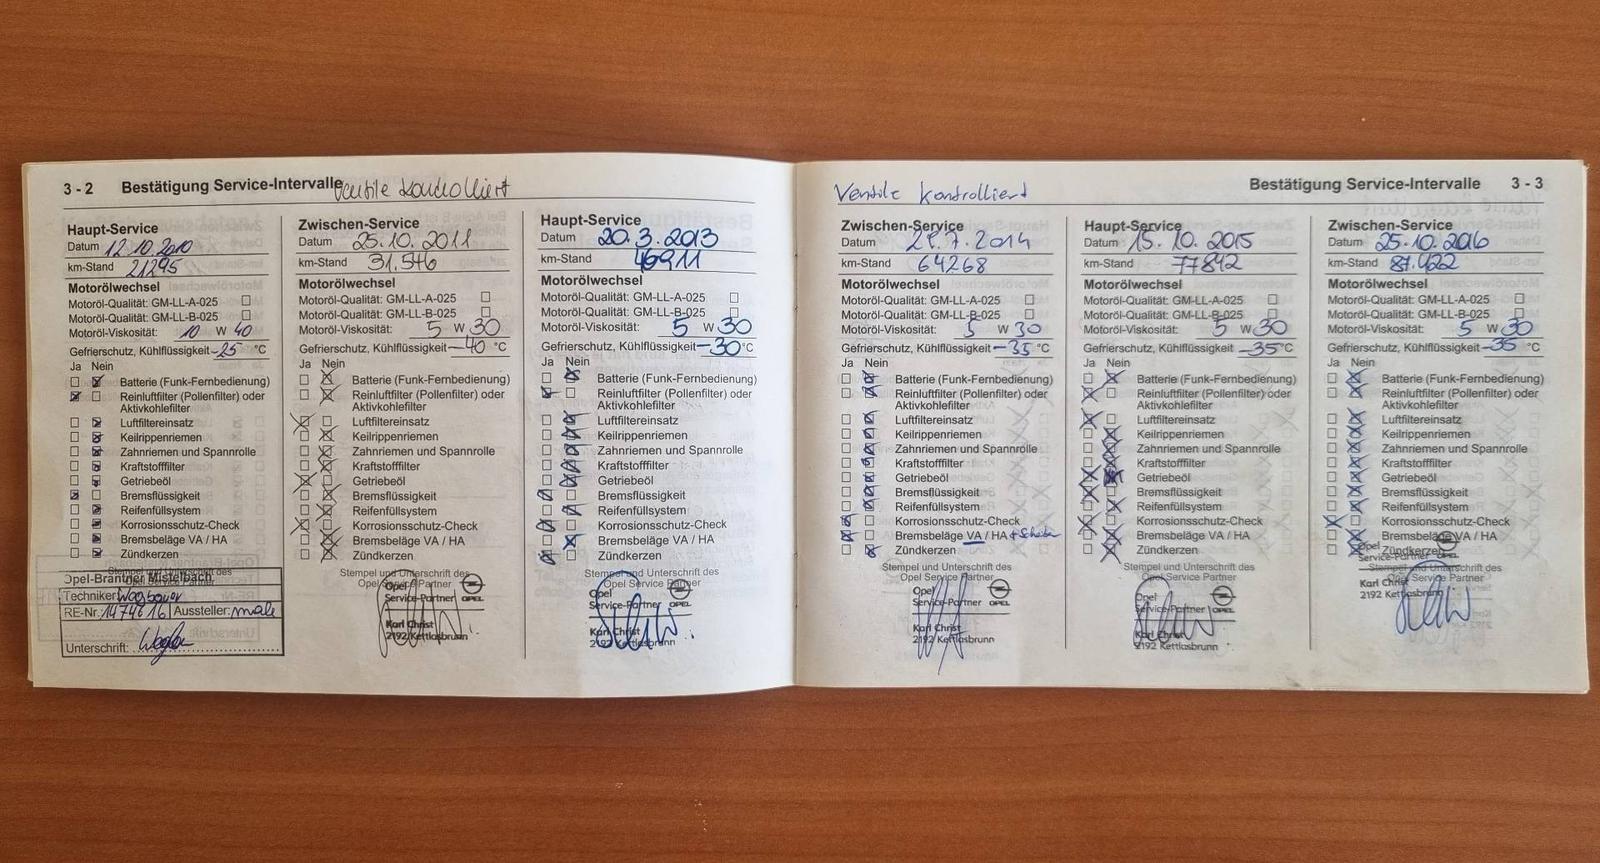 3 - 2 Bestätigung Service-Intervalle Ventile kontrolliert
Haupt-Service
Datum 12.10.2010
km-Stand 21295
Motorölwechsel
Motoröl-Qualität: GM-LL-A-025
Motoröl-Qualität: GM-LL-B-025
Motoröl-Viskosität: 10 W 40
Gefrierschutz, Kühlflüssigkeit -25 °C
Ja Nein
Batterie (Funk-Fernbedienung)
Reinluftfilter (Pollenfilter) oder
Aktivkohlefilter
Luftfiltereinsatz
Keilrippenriemen
Zahnriemen und Spannrolle
Kraftstofffilter
Getriebeöl
Bremsflüssigkeit
Reifenfüllsystem
Korrosionsschutz-Check
Bremsbeläge VA / HA
Zündkerzen
Stempel und Unterschrift des
Opel Service Partner
Opel-Brantner Mistelbach
Techniker:
RE-Nr.: Aussteller:
Unterschrift:
Zwischen-Service
Datum 25.10.2011
km-Stand 31.546
Motorölwechsel
Motoröl-Qualität: GM-LL-A-025
Motoröl-Qualität: GM-LL-B-025
Motoröl-Viskosität: 5 W 30
Gefrierschutz, Kühlflüssigkeit -40 °C
Ja Nein
Batterie (Funk-Fernbedienung)
Reinluftfilter (Pollenfilter) oder
Aktivkohlefilter
Luftfiltereinsatz
Keilrippenriemen
Zahnriemen und Spannrolle
Kraftstofffilter
Getriebeöl
Bremsflüssigkeit
Reifenfüllsystem
Korrosionsschutz-Check
Bremsbeläge VA / HA
Zündkerzen
Stempel und Unterschrift des
Opel Service Partner
Opel
Service-Partner OPEL
Karl Christ
2192 Kettlasbrunn
Haupt-Service
Datum 20.3.2013
km-Stand 46911
Motorölwechsel
Motoröl-Qualität: GM-LL-A-025
Motoröl-Qualität: GM-LL-B-025
Motoröl-Viskosität: 5 W 30
Gefrierschutz, Kühlflüssigkeit -30 °C
Ja Nein
Batterie (Funk-Fernbedienung)
Reinluftfilter (Pollenfilter) oder
Aktivkohlefilter
Luftfiltereinsatz
Keilrippenriemen
Zahnriemen und Spannrolle
Kraftstofffilter
Getriebeöl
Bremsflüssigkeit
Reifenfüllsystem
Korrosionsschutz-Check
Bremsbeläge VA / HA
Zündkerzen
Stempel und Unterschrift des
Opel Service Partner
Opel
Service-Partner OPEL
Karl Christ
2192 Kettlasbrunn
Ventile kontrolliert Bestätigung Service-Intervalle 3 - 3
Zwischen-Service
Datum 7.2014
km-Stand 64268
Motorölwechsel
Motoröl-Qualität: GM-LL-A-025
Motoröl-Qualität: GM-LL-B-025
Motoröl-Viskosität: 5 W 30
Gefrierschutz, Kühlflüssigkeit -35 °C
Ja Nein
Batterie (Funk-Fernbedienung)
Reinluftfilter (Pollenfilter) oder
Aktivkohlefilter
Luftfiltereinsatz
Keilrippenriemen
Zahnriemen und Spannrolle
Kraftstofffilter
Getriebeöl
Bremsflüssigkeit
Reifenfüllsystem
Korrosionsschutz-Check
Bremsbeläge VA / HA
Zündkerzen
Stempel und Unterschrift des
Opel Service Partner
Opel
Service-Partner OPEL
Karl Christ
2192 Kettlasbrunn
Haupt-Service
Datum 15.10.2015
km-Stand 77842
Motorölwechsel
Motoröl-Qualität: GM-LL-A-025
Motoröl-Qualität: GM-LL-B-025
Motoröl-Viskosität: 5 W 30
Gefrierschutz, Kühlflüssigkeit -35 °C
Ja Nein
Batterie (Funk-Fernbedienung)
Reinluftfilter (Pollenfilter) oder
Aktivkohlefilter
Luftfiltereinsatz
Keilrippenriemen
Zahnriemen und Spannrolle
Kraftstofffilter
Getriebeöl
Bremsflüssigkeit
Reifenfüllsystem
Korrosionsschutz-Check
Bremsbeläge VA / HA
Zündkerzen
Stempel und Unterschrift des
Opel Service Partner
Opel
Service-Partner OPEL
Karl Christ
2192 Kettlasbrunn
Zwischen-Service
Datum 25.10.2016
km-Stand 87.422
Motorölwechsel
Motoröl-Qualität: GM-LL-A-025
Motoröl-Qualität: GM-LL-B-025
Motoröl-Viskosität: 5 W 30
Gefrierschutz, Kühlflüssigkeit -35 °C
Ja Nein
Batterie (Funk-Fernbedienung)
Reinluftfilter (Pollenfilter) oder
Aktivkohlefilter
Luftfiltereinsatz
Keilrippenriemen
Zahnriemen und Spannrolle
Kraftstofffilter
Getriebeöl
Bremsflüssigkeit
Reifenfüllsystem
Korrosionsschutz-Check
Bremsbeläge VA / HA
Zündkerzen
Opel
Service-Partner OPEL
Stempel und Unterschrift des
Opel Service Partner
Karl Christ
2192 Kettlasbrunn